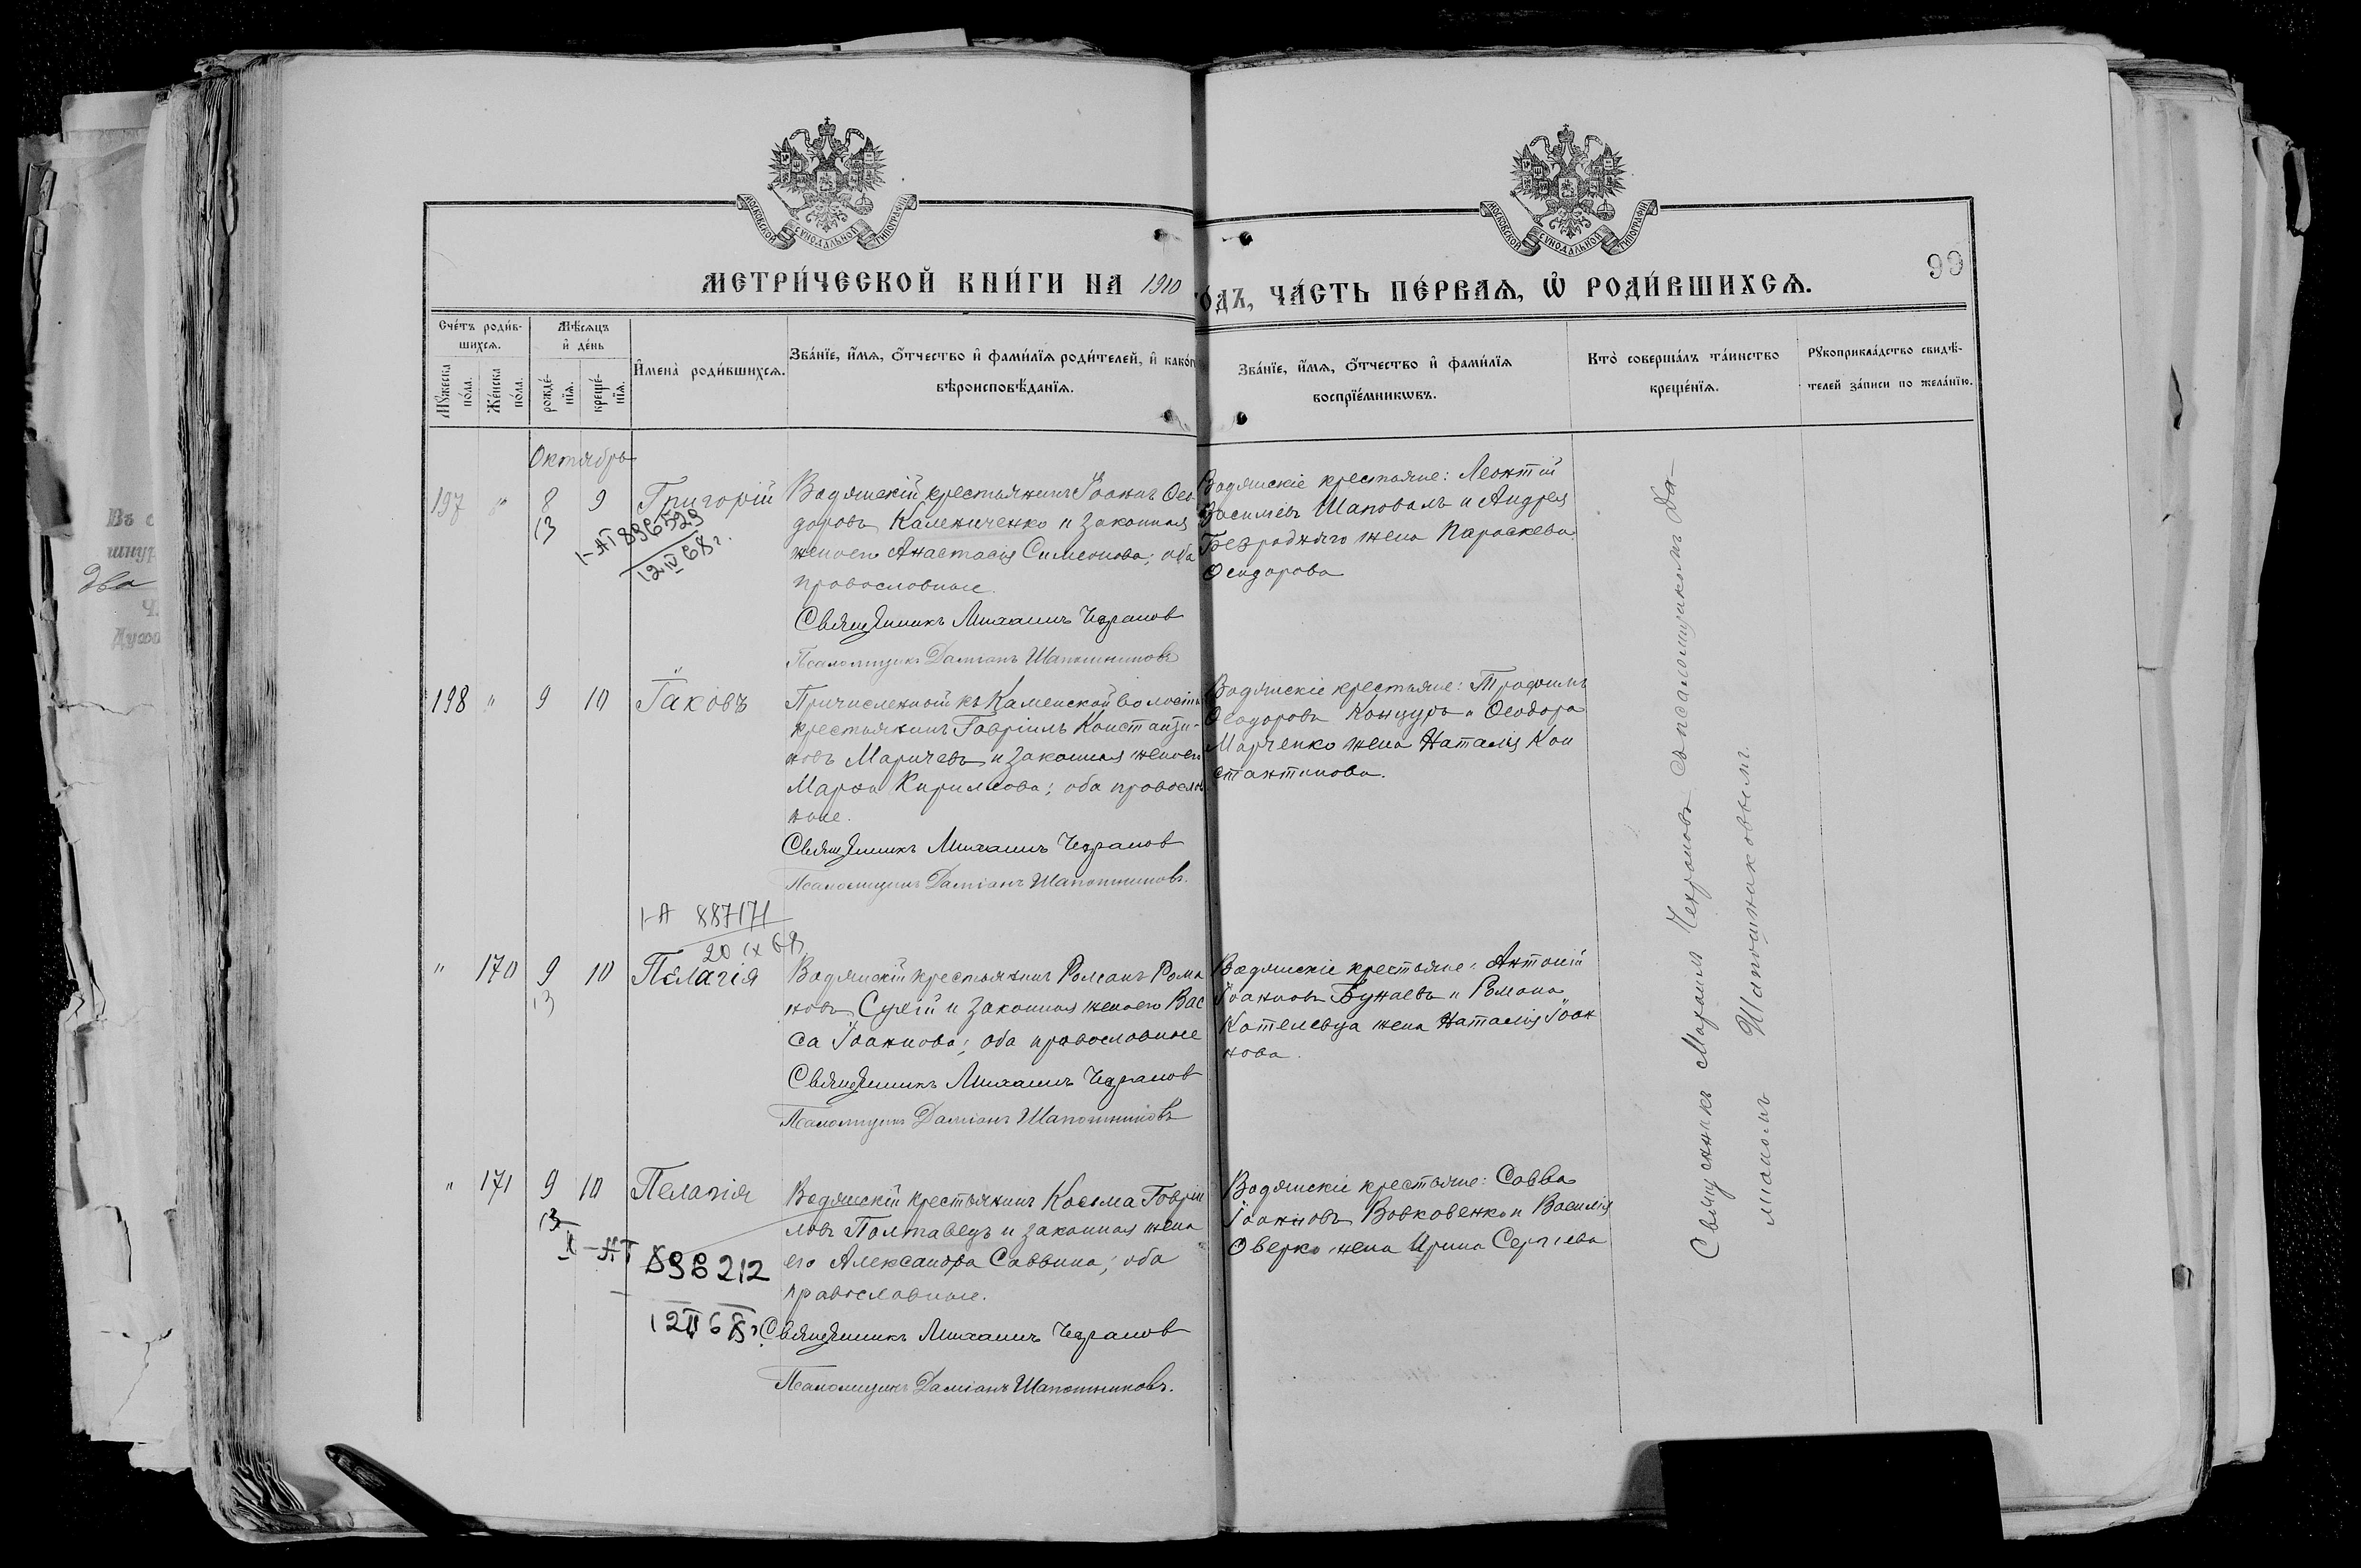 МОСКОВСКОЙ СѴНОДАЛЬНОЙ ТИПОГРАФІИ
МОСКОВСКОЙ СѴНОДАЛЬНОЙ ТИПОГРАФІИ
МЕТРИ́ЧЕСКОЙ КНИ́ГИ НА 1910
ГО́ДЪ, ЧА́СТЬ ПЕ́РВАѦ, Ѡ҆ РОДИ́ВШИХСѦ.
99
Сче́тъ роди́в-
шихсѧ.
Мꙋ́жеска по́ла.
Же́нска по́ла.
Мѣ́сѧцъ
и҆ де́нь
рожде́-
нїѧ.
креще́-
нїѧ.
И҆мена̀ роди́вшихсѧ.
Зва́нїе, и҆́мѧ, ѻ҆́тчество и҆ фами́лїѧ роди́телей, и҆ како́г
вѣроисповѣ́данїѧ.
Зва́нїе, и҆́мѧ, ѻ҆́тчество и҆ фами́лїѧ
воспрїе́мникѡвъ.
Кто̀ соверша́лъ та́инство
креще́нїѧ.
Рꙋкоприкла́дство свидѣ́-
телей за́писи по жела́нїю.
Октябрь
197 " 8 9 Григорій
13
1-АТ 836529
12 IV 68г.
Водянскій крестьянинъ Іоаннъ Ѳео-
доровъ Калениченко и законная
жена его Анастасія Симеонова; оба
православные.
Священникъ Михаилъ Чехранов
Псаломщикъ Даміанъ Шапошниковъ
Водянскіе крестьяне: Леонтій
Васильевъ Шаповалъ и Андрея
Безроднаго жена Параскева
Ѳеодорова
198 " 9 10 Іаковъ
Причисленный къ Каменской волости
крестьянинъ Гавріилъ Константи-
новъ Маричевъ и законная жена его
Марѳа Кирилова; оба православ
ные.
Священникъ Михаилъ Чехранов
Псаломщикъ Даміанъ Шапошниковъ.
Водянскіе крестьяне: Трофимъ
Ѳеодоровъ Канцуръ и Ѳеодора
Марченко жена Наталія Кон
стантинова.
1-А 887171
20 IX 68
" 170 9 10 Пелагія
13
Водянскій крестьянинъ Романъ Рома
новъ Сулій и законная жена его Вас
са Іоаннова; оба православные
Священникъ Михаилъ Чехранов
Псаломщикъ Даміанъ Шапошниковъ
Водянскіе крестьяне: Антоній
Іоанновъ Бунаевъ и Романа
Котелевца жена Наталія Іоан
нова.
" 171 9 10 Пелагія
13
I-АТ 898212
12 II 68г.
Водянскій крестьянинъ Косьма Гавріи
ловъ Полтавецъ и законная жена
его Александра Саввина; оба
православные.
Священникъ Михаилъ Чехранов
Псаломщикъ Даміанъ Шапошниковъ.
Водянскіе крестьяне: Савва
Іоанновъ Вовковенко и Василія
Оверко жена Ирина Сергіева
Священникъ Михаилъ Чехрановъ съ псаломщикомъ Да-
міаномъ Шапошниковымъ.
Въ с
шнур
Два